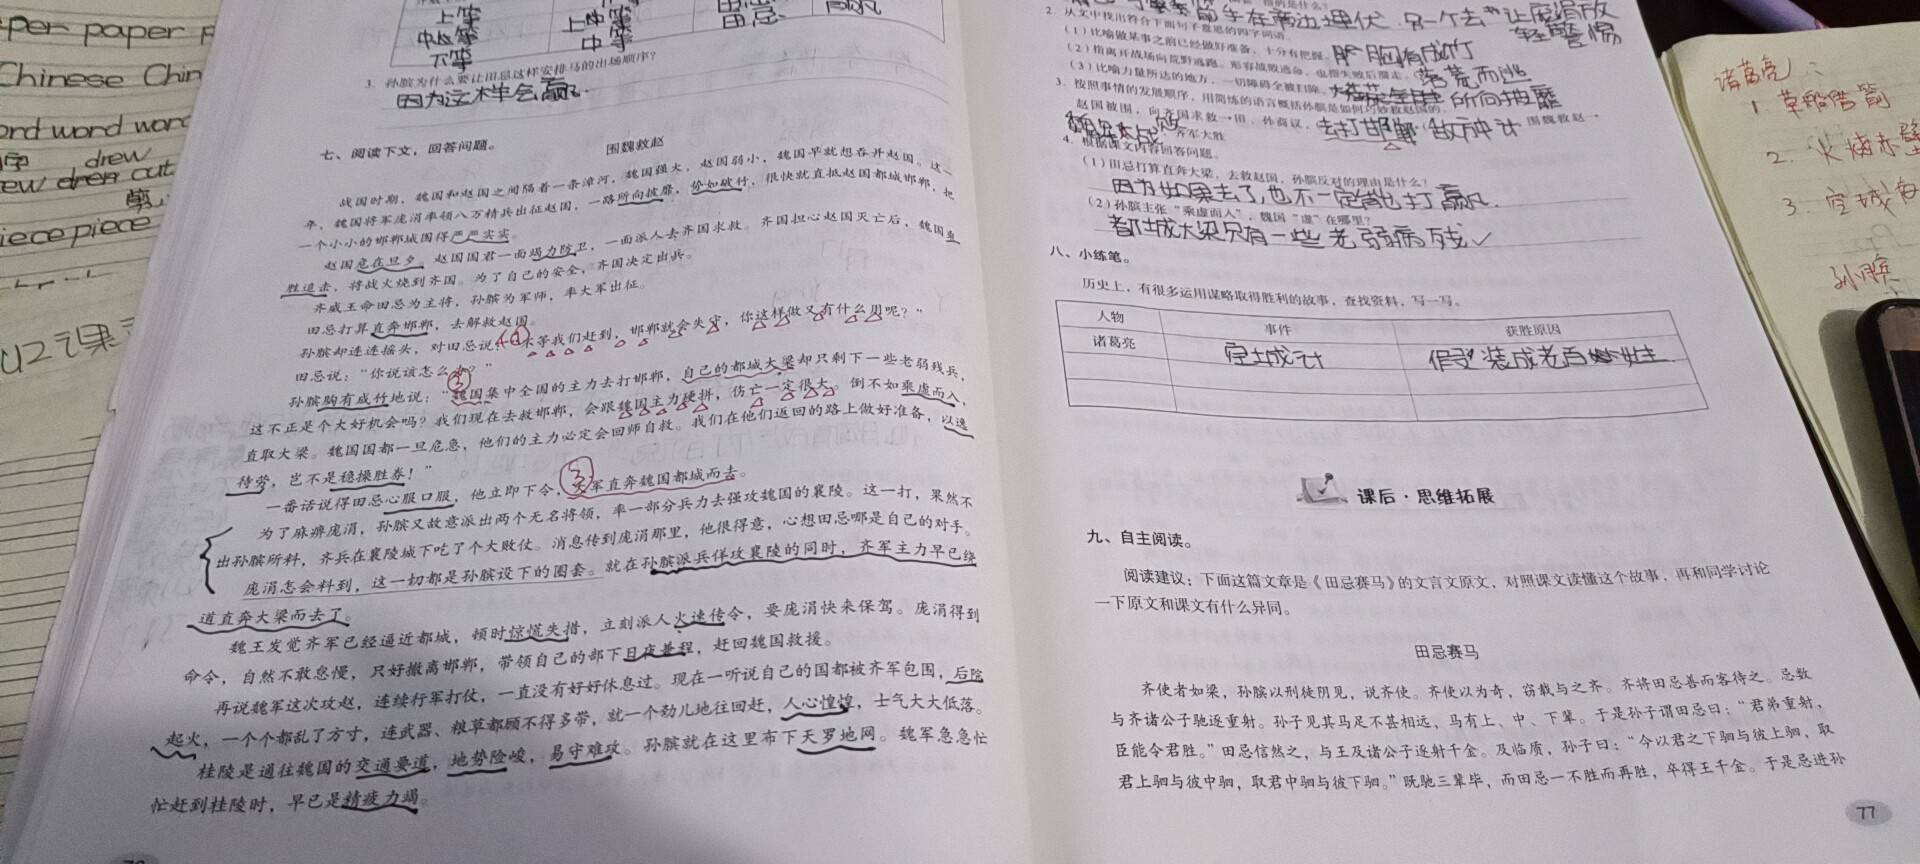 per paper p
Chinese Chin
ord word word
drew
cut
剪
iece piece
上等
中等
下等
上等
中等
田忌
3. 孙膑为什么要让田忌这样安排马的出场顺序?
因为这样会赢.
七、阅读下文，回答问题。
围魏救赵
战国时期，魏国和赵国之间隔着一条漳河，魏国强大，赵国弱小，魏国早就想吞并赵国。这一
年，魏国将军庞涓率领八万精兵出征赵国，一路所向披靡，势如破竹，很快就直抵赵国都城邯郸，把
一个小小的邯郸城围得严严实实。
赵国危在旦夕。赵国国君一面竭力防卫，一面派人去齐国求救。齐国担心赵国灭亡后，魏国乘
胜追击，将战火烧到齐国。为了自己的安全，齐国决定出兵。
齐威王命田忌为主将，孙膑为军师，率大军出征。
田忌打算直奔邯郸，去解救赵国。
孙膑却连连摇头，对田忌说：“不等我们赶到，邯郸就会失守，你这样做又有什么用呢？”
田忌说：“你说该怎么办？”
孙膑胸有成竹地说：“魏国集中全国的主力去打邯郸，自己的都城大梁却只剩下一些老弱残兵，
这不正是个大好机会吗？我们现在去救邯郸，会跟魏国主力硬拼，伤亡一定很大。倒不如乘虚而入，
直取大梁。魏国国都一旦危急，他们的主力必定会回师自救。我们在他们返回的路上做好准备，以逸
待劳，岂不是稳操胜券！”
一番话说得田忌心服口服，他立即下令，大军直奔魏国都城而去。
为了麻痹庞涓，孙膑又故意派出两个无名将领，率一部分兵力去强攻魏国的襄陵。这一打，果然不
出孙膑所料，齐兵在襄陵城下吃了个大败仗。消息传到庞涓那里，他很得意，心想田忌哪是自己的对手。
庞涓怎会料到，这一切都是孙膑设下的圈套。就在孙膑派兵佯攻襄陵的同时，齐军主力早已绕
道直奔大梁而去了。
魏王发觉齐军已经逼近都城，顿时惊慌失措，立刻派人火速传令，要庞涓快来保驾。庞涓得到
命令，自然不敢怠慢，只好撤离邯郸，带领自己的部下日夜兼程，赶回魏国救援。
再说魏军这次攻赵，连续行军打仗，一直没有好好休息过。现在一听说自己的国都被齐军包围，后院
起火，一个个都乱了方寸，连武器、粮草都顾不得多带，就一个劲儿地往回赶，人心惶惶，士气大大低落。
桂陵是通往魏国的交通要道，地势险峻，易守难攻。孙膑就在这里布下天罗地网。魏军急急忙
忙赶到桂陵时，早已是精疲力竭。
2. 从文中找出符合下面句子意思的四字词语。
（1）比喻做某事之前已经做好准备，十分有把握。胸有成竹
（2）指离开战场向荒野逃跑。形容战败逃命，也指失败后溜走。落荒而逃
（3）比喻力量所达的地方，一切障碍全被扫除。所向披靡
3. 按照事情的发展顺序，用简练的语言概括孙膑是如何巧妙救赵国的。
赵国被围，向齐国求救→田、孙商议，去打邯郸
围魏救赵→
齐军大胜
4. 根据课文内容回答问题。
（1）田忌打算直奔大梁，去救赵国，孙膑反对的理由是什么？
因为如果去了,也不一定能打赢.
（2）孙膑主张“乘虚而入”，魏国“虚”在哪里？
都城大梁只有一些老弱病残✓
八、小练笔。
历史上，有很多运用谋略取得胜利的故事，查找资料，写一写。
人物 事件 获胜原因
诸葛亮 空城计 假装成老百姓.
课后·思维拓展
九、自主阅读。
阅读建议：下面这篇文章是《田忌赛马》的文言文原文，对照课文读懂这个故事，再和同学讨论
一下原文和课文有什么异同。
田忌赛马
齐使者如梁，孙膑以刑徒阴见，说齐使。齐使以为奇，窃载与之齐。齐将田忌善而客待之。忌数
与齐诸公子驰逐重射。孙子见其马足不甚相远，马有上、中、下辈。于是孙子谓田忌曰：“君弟重射，
臣能令君胜。”田忌信然之，与王及诸公子逐射千金。及临质，孙子曰：“今以君之下驷与彼上驷，取
君上驷与彼中驷，取君中驷与彼下驷。”既驰三辈毕，而田忌一不胜而再胜，卒得王千金。于是忌进孙
77
诸葛亮：
1. 草船借箭
2. 火烧赤壁
3. 空城
孙膑